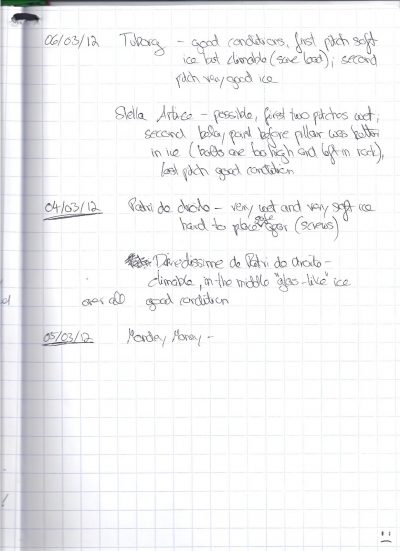 06/03/12 Tuborg - good conditions, first pitch soft
ice but climable (save lead); second
pitch very good ice
Stella Artice - possible, first two pitches wet;
second belay point before pillar was
in ice (bolts are too high and left in rock),
last pitch good condition
04/03/12 Patri do droito - very wet and very soft ice
hard to place safe gear (screws)
de Patri do droito -
climable, in the middle "glas-like" ice
over all good condition
05/03/12 Monday Money -